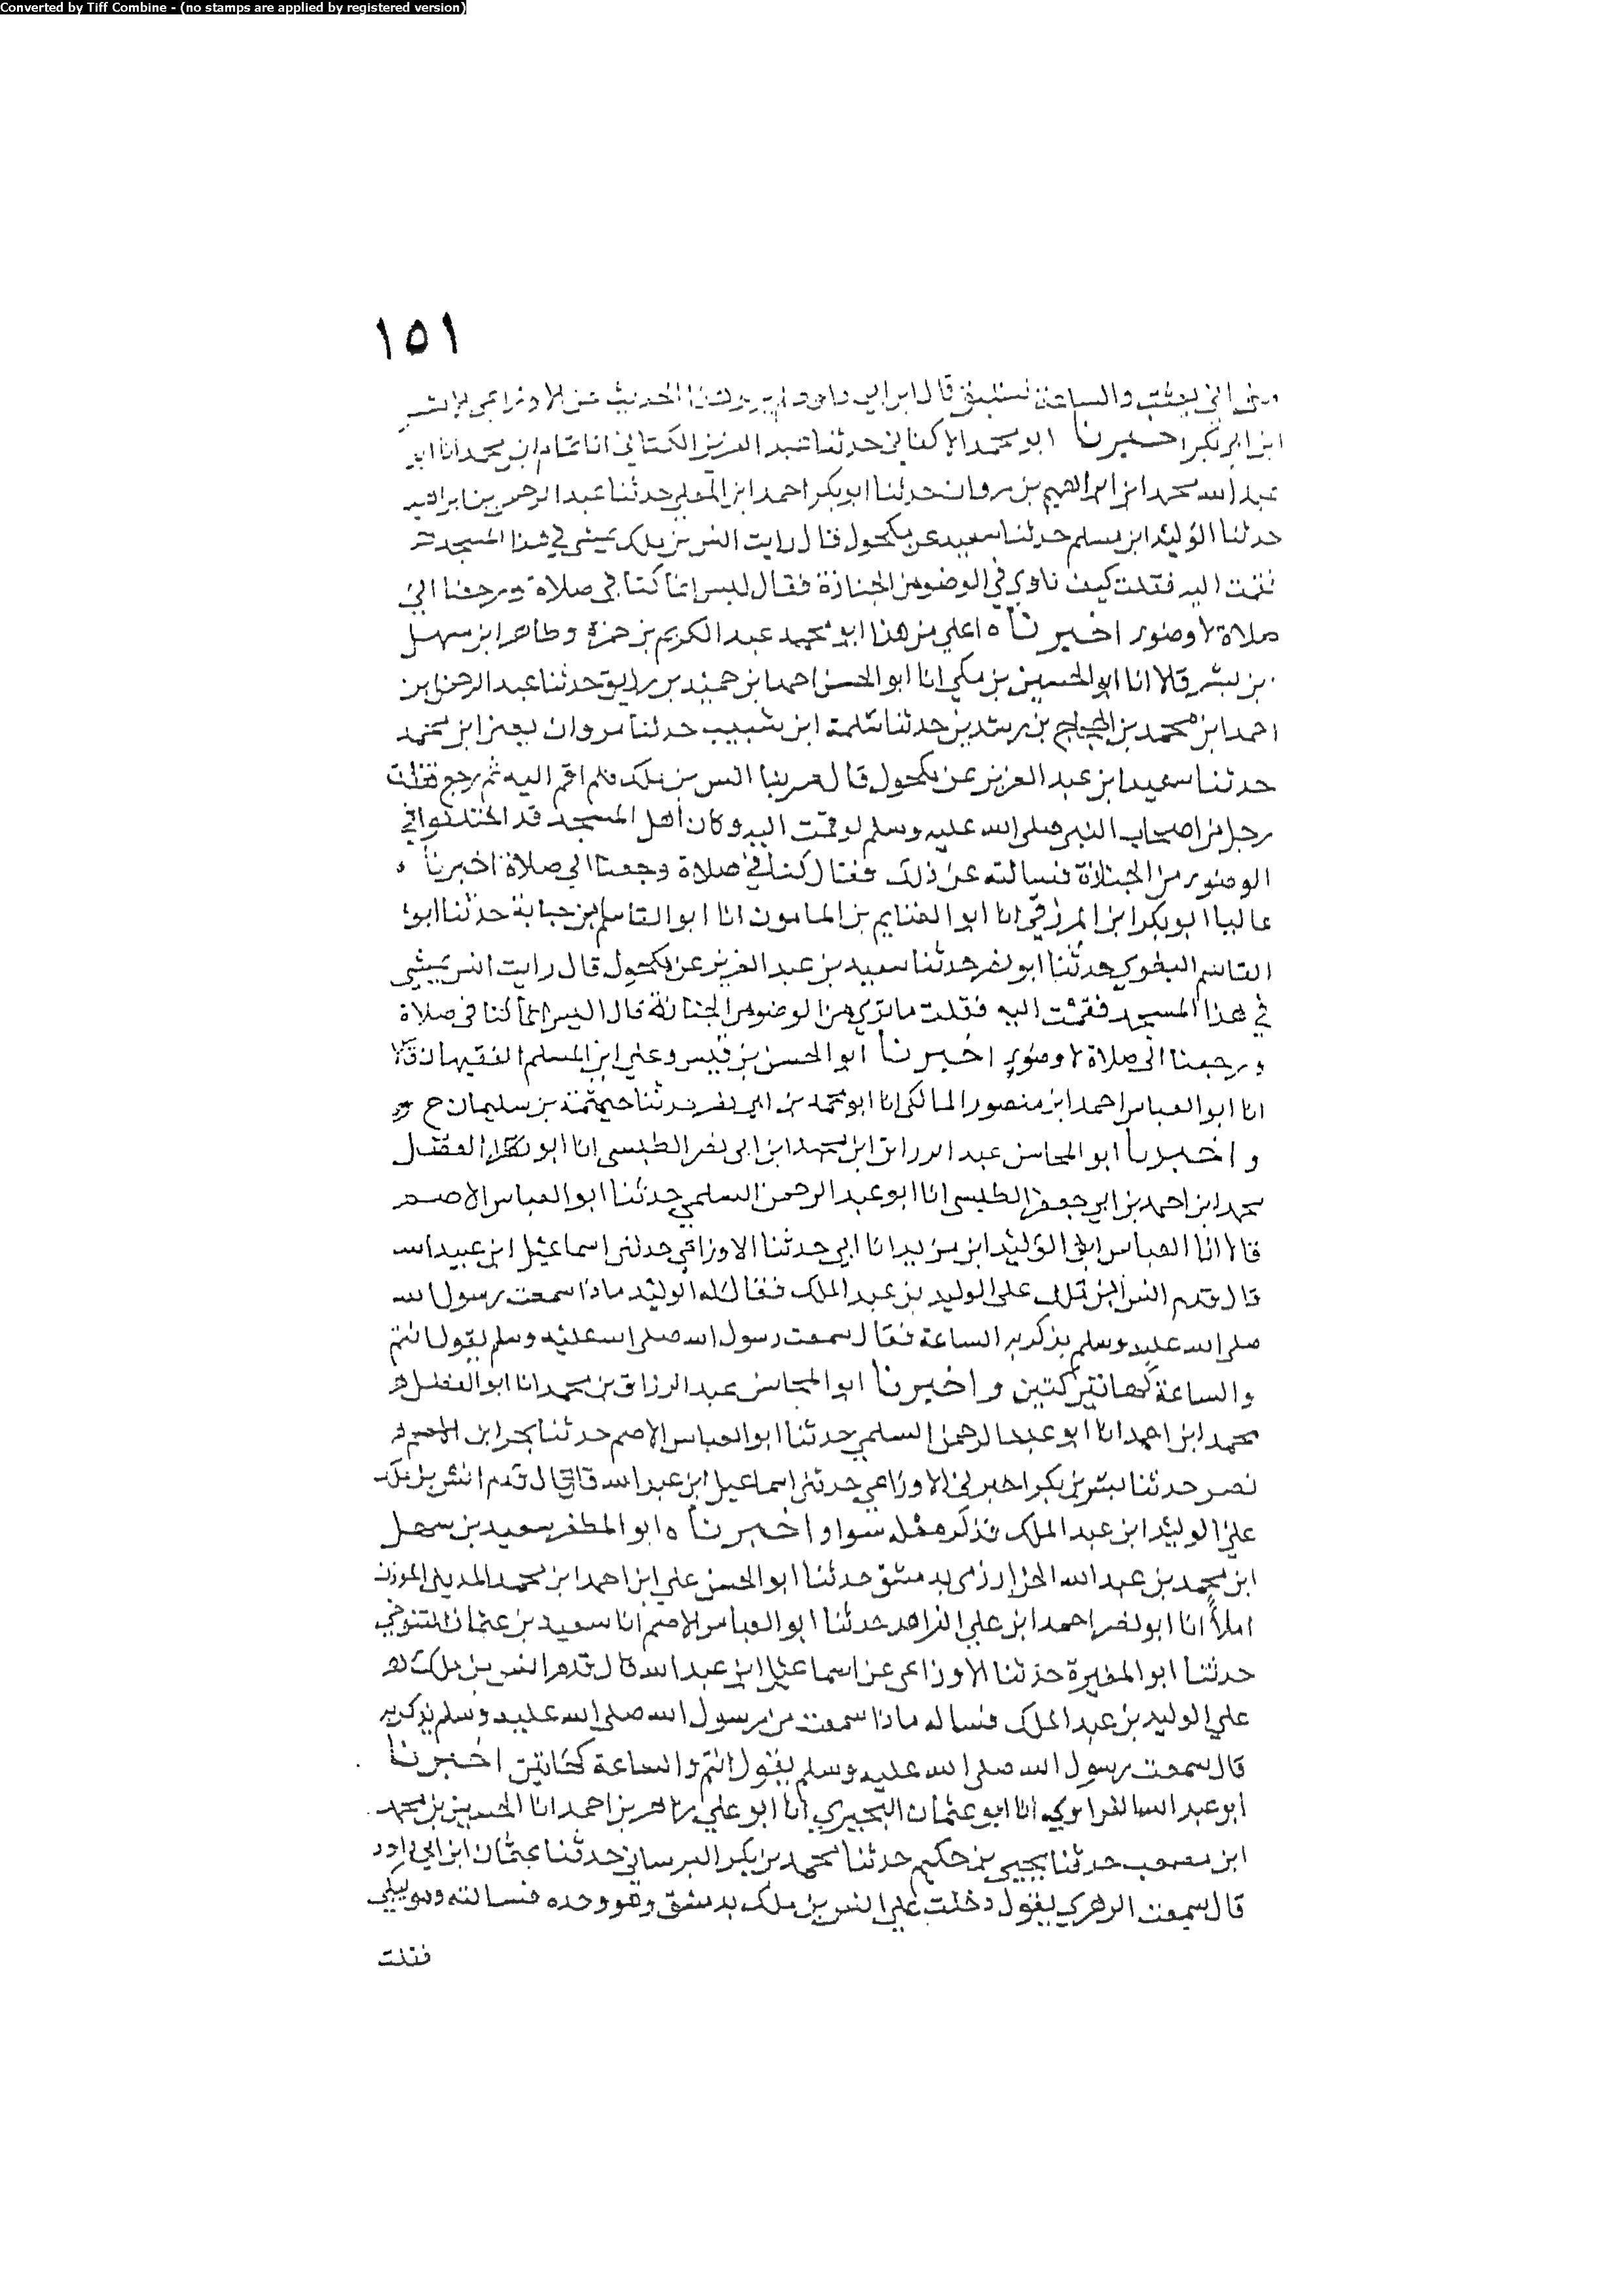 Converted by Tiff Combine - (no stamps are applied by registered version)
١٥١
اني بعثت والساعة نستبق قال ابن ابي داود لم يرو هذا الحديث عن الاوزاعي الا بشر
ابن بكر اخبرنا ابو محمد الاكفاني حدثنا عبد العزيز الكتاني انا تمام ابن محمد انا ابو
عبد الله محمد ابن ابراهيم بن مروان حدثنا ابو بكر احمد ابن المعلى حدثنا عبد الرحمن بن ابراهيم
حدثنا الوليد ابن مسلم حدثنا سعيد عن مكحول قال رايت انس بن ملك يمشي في هذا المسجد
فقمت اليه فقلت كيف في الوضو من الجنازة فقال ليس انما كنا في صلاة ورجعنا الى
صلاة لا وضور اخبرنا ه اعلي من هذا ابو محمد عبد الكريم بن حمزة وطاهر ابن سهل
بن بشر قالا انا ابو الحسين بن مكي انا ابو الحسن احمد بن حميد بن رزيق حدثنا عبد الرحمن ابن
احمد ابن محمد بن الحجاج بن رشدين حدثنا سلمة ابن شبيب حدثنا مروان يعني ابن محمد
حدثنا سعيد ابن عبد العزيز عن مكحول قال مر بنا انس بن ملك فلم اقم اليه ثم رجع فقلت
رجل من اصحاب النبي صلى الله عليه وسلم لو قمت اليه وكان اهل المسجد قد اختلفوا في
الوضور من الجنازة فسالته عن ذلك فقال كنا في صلاة وجعنا الى صلاة اخبرنا ه
عاليا ابو بكر ابن المرزقي انا ابو الغنايم بن المامون انا ابو القاسم بن حبابة حدثنا ابو
القاسم البغوي حدثنا ابو نصر حدثنا سعيد بن عبد العزيز عن مكحول قال رايت انس يمشي
في هذا المسجد فقمت اليه فقلت ما ترى من الوضو من الجنازة قال اليس انما كنا في صلاة
ورجعنا الى صلاة لا وضور اخبرنا ابو الحسن بن قيس وعلي ابن المسلم الفقيهان قالا
انا ابو العباس احمد ابن منصور المالكي انا ابو محمد بن ابي نصر حدثنا خيثمة بن سليمان ح
و اخبرنا ابو المحاسن عبد الرزاق ابن محمد ابن ابي نصر الطبسي انا ابو الفضل
محمد ابن احمد بن ابي جعفر الطبسي انا ابو عبد الرحمن السلمي حدثنا ابو العباس الاصم
قالا انا العباس ابن الوليد ابن مزيد انا ابي حدثنا الاوزاعي حدثني اسماعيل ابن عبيد الله
قال قدم انس ابن ملك على الوليد بن عبد الملك فقال له الوليد ماذا سمعت رسول الله
صلى الله عليه وسلم يذكر به الساعة فقال سمعت رسول الله صلى الله عليه وسلم يقول انتم
والساعة كهاتين واخبرنا ابو المحاسن عبد الرزاق بن محمد انا ابو الفضل
محمد ابن احمد انا ابو عبد الرحمن السلمي حدثنا ابو العباس الاصم حدثنا بحر ابن
نصر حدثنا بشر بن بكر اخبرني الاوزاعي حدثني اسماعيل ابن عبد الله قال قدم انس بن ملك
على الوليد ابن عبد الملك فذكر مثله سوا واخبرنا ه ابو المظفر سعيد بن سهل
ابن محمد بن عبد الله بدمشق حدثنا ابو الحسن علي ابن احمد ابن محمد المديني الموزن
املأ انا ابو نصر احمد ابن علي الزاهد حدثنا ابو العباس الاصم انا سعيد بن عثمان التنوخي
حدثنا ابو المغيرة حدثنا الاوزاعي عن اسماعيل ابن عبد الله قال قدم انس بن ملك
على الوليد بن عبد الملك فساله ماذا سمعت من رسول الله صلى الله عليه وسلم يذكر به
قال سمعت رسول الله صلى الله عليه وسلم يقول انتم والساعة كهاتين اخبرنا
ابو عبد الله الفراوي انا ابو عثمان البحيري انا ابو علي زاهر بن احمد انا الحسين بن محمد
ابن مصعب حدثنا يحيى بن حكيم حدثنا محمد بن بكر البرساني حدثنا عثمان ابن ابي داود
قال سمعت الزهري يقول دخلت على انس بن ملك بدمشق وهو وحده فسالته وهو يبكي
فقلت